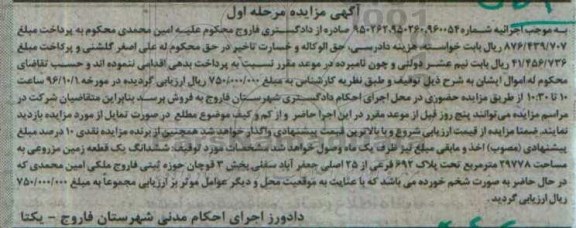 آگهی مزایده مرحله اول
به موجب اجرائیه شماره ۹۶۰۰۵۴-۹۵۰۳۶۰-۹۵۰۲۶۲ صادره از دادگستری فاروج محکوم علیه امین محمدی محکوم به پرداخت مبلغ
۸۷۶/۴۳۹/۷۰۷ ریال بابت خواسته، هزینه دادرسی، حق الوکاله و خسارت تاخیر در حق محکوم له علی اصغر گلشنی و پرکاخت مبلغ
۴۱/۴۵۶/۷۳۶ ریال بابت نیم عشر دولتی و چون نامبرده در موعد مقرر نسبت به پرداخت بدهی اقدامی ننموده اند و حسب تقاضای
محکوم له اموال ایشان به شرح ذیل توقیف و طبق نظریه کارشناس به مبلغ ۷۵۰/۰۰۰/۰۰۰ ریال ارزیابی گردیده در مورخه ۹۶/۱۰/۱ ساعت
۱۰ تا ۱۰:۳۰ از طریق مزایده حضوری در محل اجرای احکام دادگستری شهرستان فاروج به فروش برسد. بنابراین متقاضیان شرکت در
مراسم مزایده می توانند پنج روز قبل از موعد مقرر در این اجرا حاضر و از کم و کیف موضوع مطلع در صورت تمایل از مورد مزایده بازدید
نمایند. ضمنا مزایده از قیمت ارزیابی شروع و با بالاترین قیمت پیشنهادی واگذار خواهد شد همچنین از برنده مزایده نقدی ۱۰ درصد مبلغ
پیشنهادی (مصوب) اخذ و مابقی مبلغ نیز ظرف یک ماه وصول خواهد شد مشخصات مورد توقیف: ششدانگ یک قطعه زمین مزروعی به
مساحت ۲۹۷۷۸ مترمربع تحت پلاک ۶۹۲ فرعی از ۲۵ اصلی جعفر آباد سفلی بخش ۳ قوچان حوزه ثبتی فاروج ملکی امین محمدی که
در حال حاضر به صورت شخم خورده می باشد که با عنایت به موقعیت محل و دیگر عوامل موثر بر ارزیابی مجموعا به مبلغ ۷۵۰/۰۰۰/۰۰۰
ریال ارزیابی گردید.
دادورز اجرای احکام مدنی شهرستان فاروج - یکتا